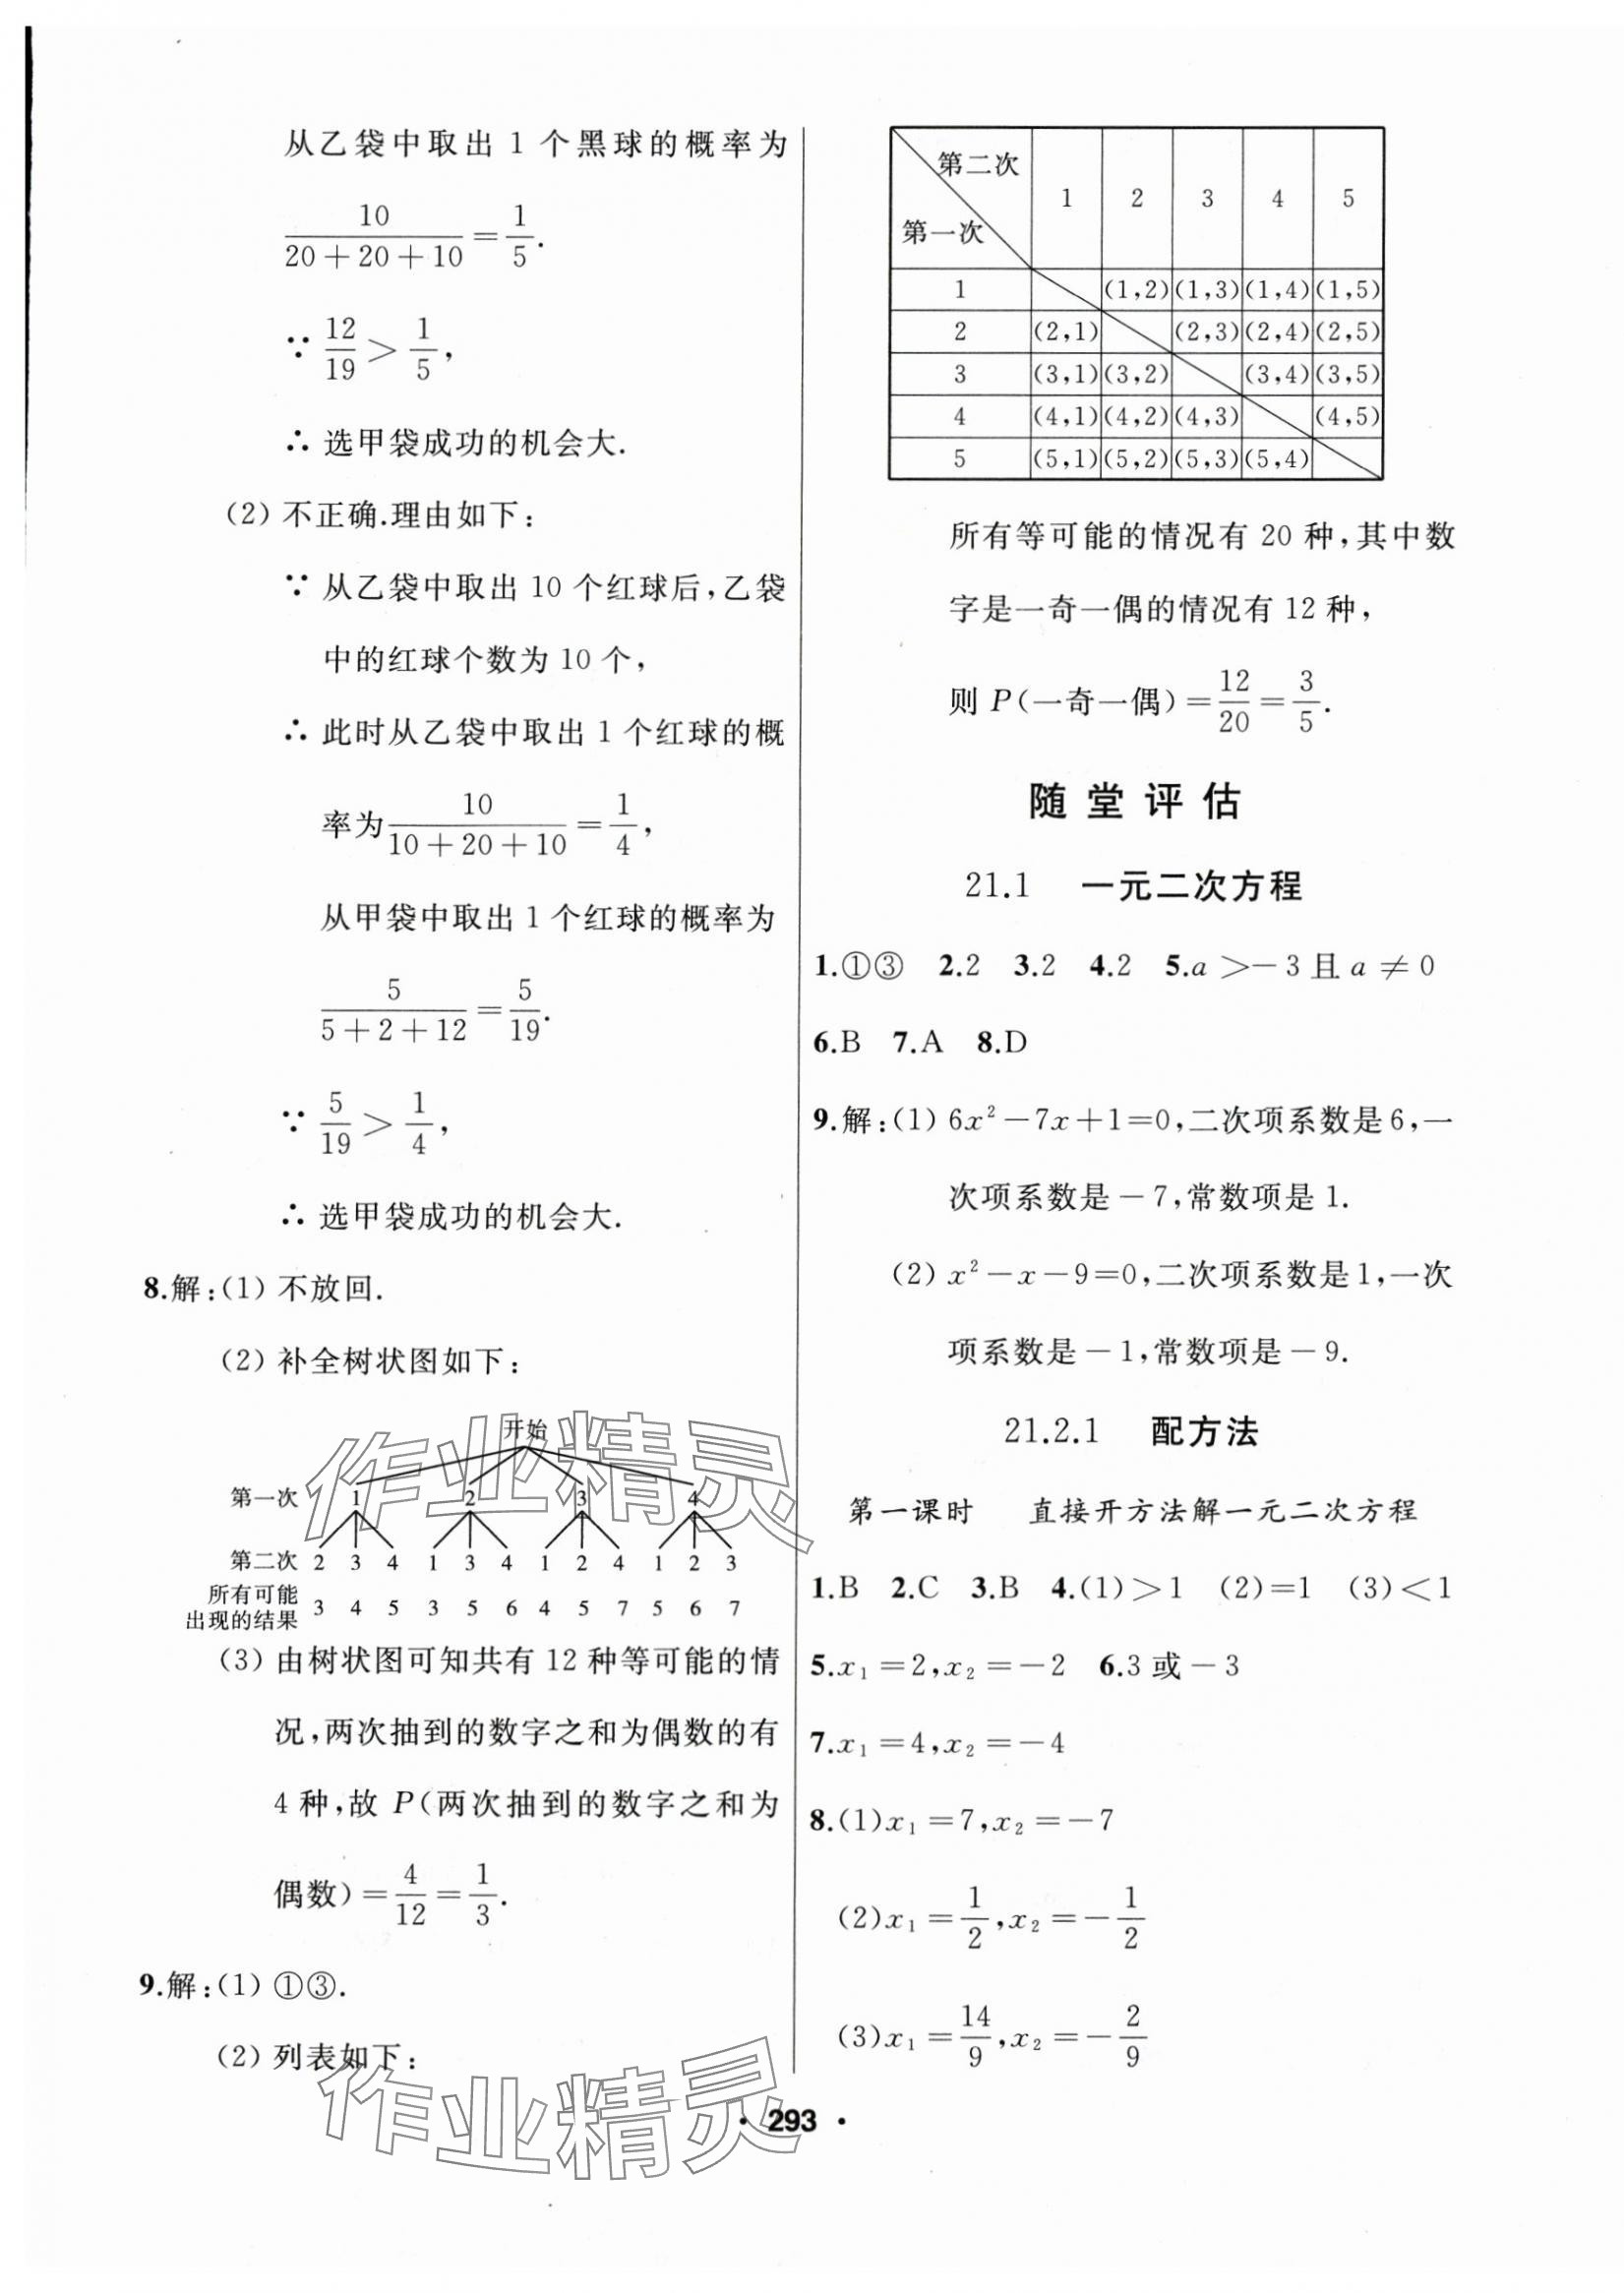 从乙袋中取出 1 个黑球的概率为
10/(20+20+10)=1/5.
∵ 12/19>1/5,
∴ 选甲袋成功的机会大.
(2) 不正确.理由如下:
∵ 从乙袋中取出 10 个红球后,乙袋
中的红球个数为 10 个,
∴ 此时从乙袋中取出 1 个红球的概
率为10/(10+20+10)=1/4,
从甲袋中取出 1 个红球的概率为
5/(5+2+12)=5/19.
∵ 5/19>1/4,
∴ 选甲袋成功的机会大.
8.解:(1) 不放回.
(2) 补全树状图如下:
开始
第一次 1 2 3 4
第二次 2 3 4 1 3 4 1 2 4 1 2 3
所有可能
出现的结果 3 4 5 3 5 6 4 5 7 5 6 7
(3) 由树状图可知共有 12 种等可能的情
况,两次抽到的数字之和为偶数的有
4 种,故 P(两次抽到的数字之和为
偶数)=4/12=1/3.
9.解:(1) ①③.
(2) 列表如下:
第二次
第一次 1 2 3 4 5
1 (1,2) (1,3) (1,4) (1,5)
2 (2,1) (2,3) (2,4) (2,5)
3 (3,1) (3,2) (3,4) (3,5)
4 (4,1) (4,2) (4,3) (4,5)
5 (5,1) (5,2) (5,3) (5,4)
所有等可能的情况有 20 种,其中数
字是一奇一偶的情况有 12 种,
则 P(一奇一偶)=12/20=3/5.
随堂评估
21.1 一元二次方程
1.①③ 2.2 3.2 4.2 5.a>-3且a≠0
6.B 7.A 8.D
9.解:(1) 6x²-7x+1=0,二次项系数是6,一
次项系数是-7,常数项是1.
(2) x²-x-9=0,二次项系数是1,一次
项系数是-1,常数项是-9.
21.2.1 配方法
第一课时 直接开方法解一元二次方程
1.B 2.C 3.B 4.(1)>1 (2)=1 (3)<1
5.x₁=2,x₂=-2 6.3或-3
7.x₁=4,x₂=-4
8.(1)x₁=7,x₂=-7
(2)x₁=1/2,x₂=-1/2
(3)x₁=14/9,x₂=-2/9
· 293 ·
作业精灵
作业精灵